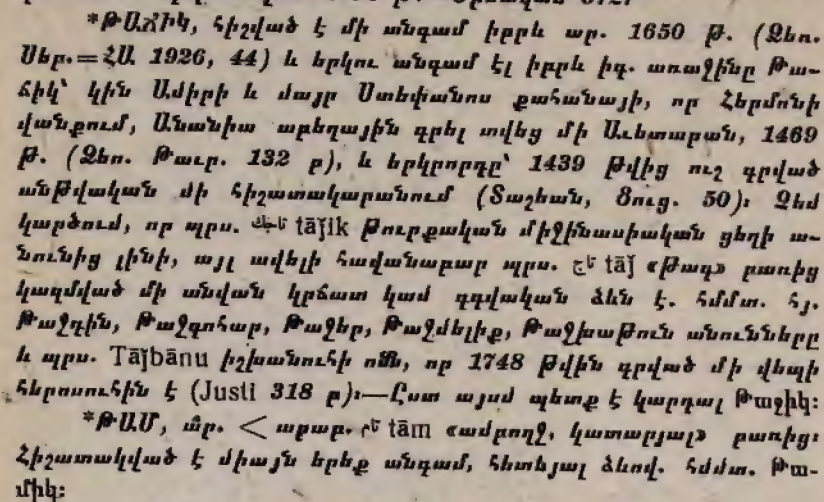 *ԹԱՃԻԿ, հիշված է մի անգամ իբրև ար. 1650 թ. (Ձեռ.
Սեր.=ՀԱ 1926, 44) և երկու անգամ էլ իբրև իգ. առաջինը Թա-
ճիկ՝ կին Ամիրի և մայր Ստեփանոս քահանայի, որ Հերմոնի
վանքում, Անանիա աբեղային գրել տվեց մի Ավետարան, 1469
թ. (Ձեռ. Թավր. 132 բ), և երկրորդը՝ 1439 թվից ուշ գրված
անթվական մի հիշատակարանում (Տաշեան, Ցուց. 50)։ Չեմ
կարծում, որ պրս. تاجیك tāǰik թուրքական միջինասիական ցեղի ա-
նունից լինի, այլ ավելի հավանաբար պրս. تاج tāǰ «թագ» բառից
կազմված մի անվան կրճատ կամ գգվական ձևն է. հմմտ. հյ.
Թաջդին, Թաջգոհար, Թաջեր, Թաջմելիք, Թաջխաթուն անունները
և պրս. Tāǰbānu իշխանուհի որ 1748 թվին գրված մի վեպի
հերոսուհին է (Justi 318 բ)։—Ըստ այսմ պետք է կարդալ Թաջիկ։
*ԹԱՄ, ար. < արաբ. تام tām «ամբողջ, կատարյալ» բառից։
Հիշատակված է միայն երեք անգամ, հետևյալ ձևով. հմմտ. Թա-
միկ։